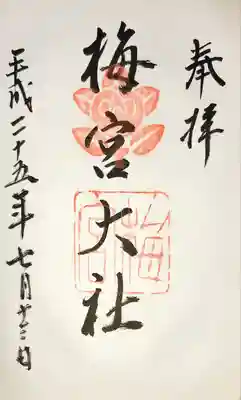 奉拝
梅宮大社
平成二十五年七月十三日